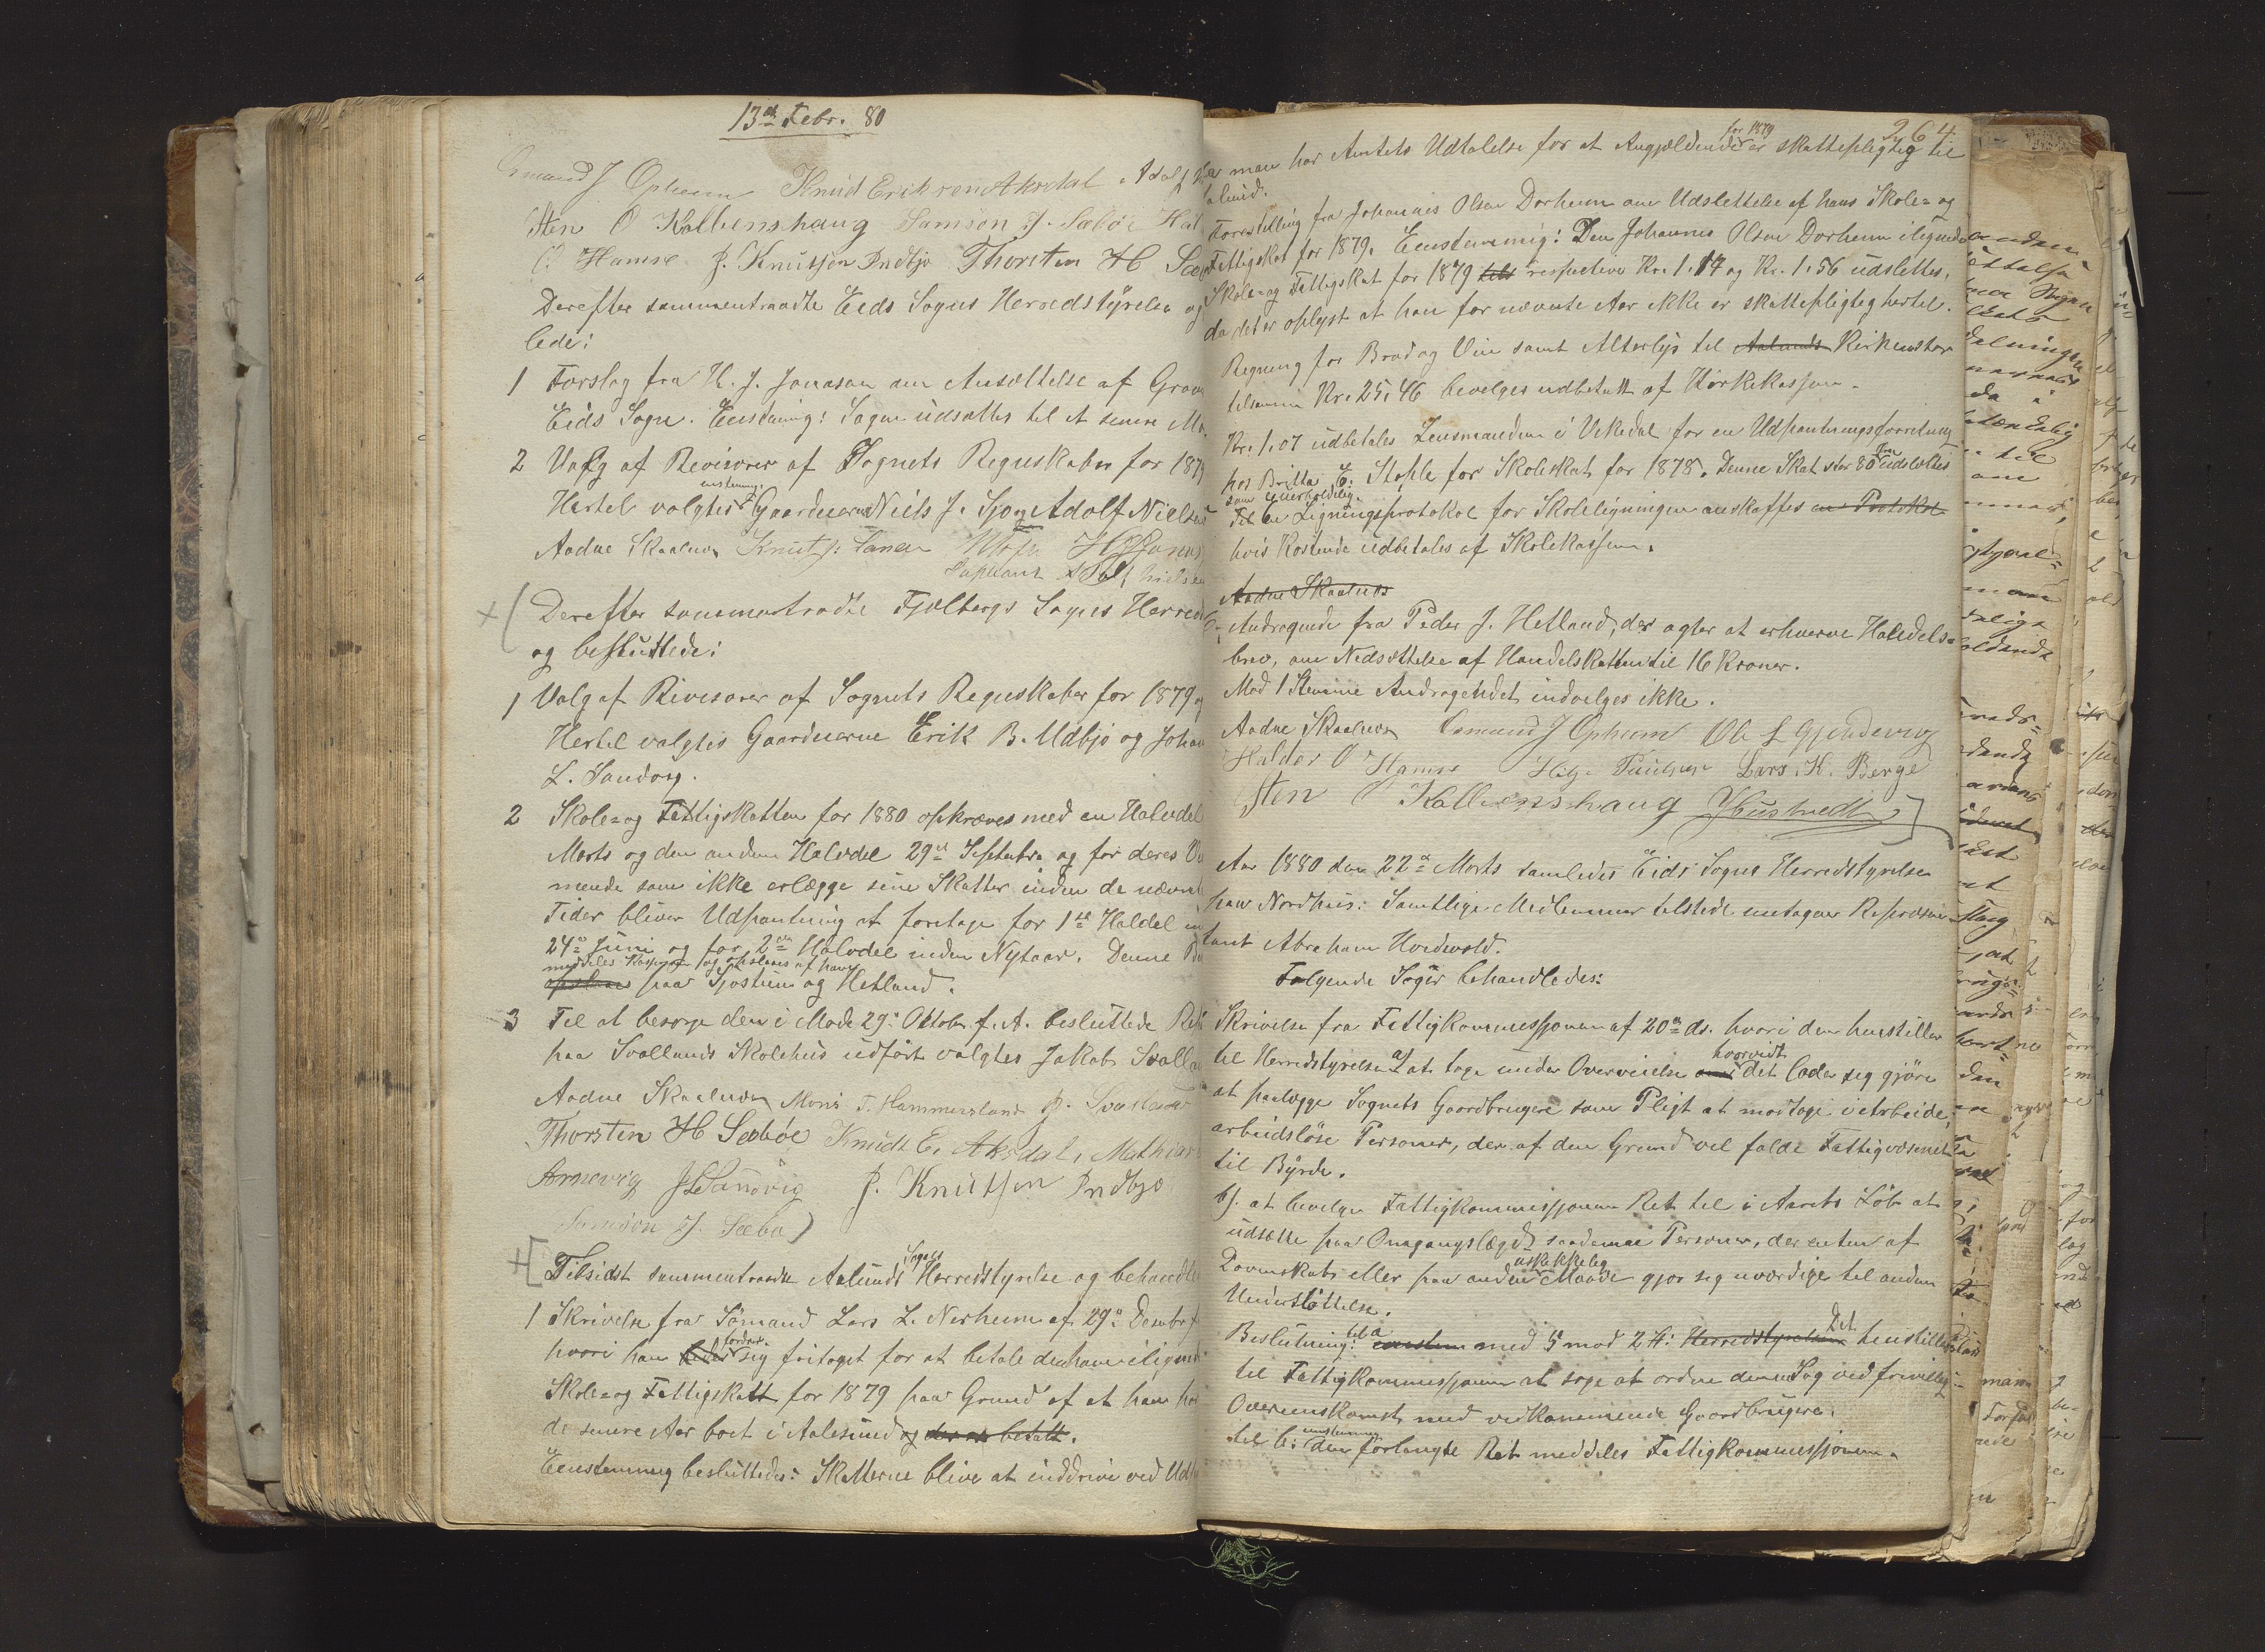 13de Febr. 80
Osmund J Opheim Knud Eriksen Aksdal Adolf
Sten O Kallenshaug Samson J. Sæbøe Hal
O. Hamre J. Knutsen Indbjo Thorsten H Sæ
Derefter sammentraadte Eids Sogns Herredstyrelse og
lede:
1 Forslag fra H. J. Jonassen om Ansættelse af Grav
Eids Sogn. Enstemmig: Sagen udsattes til et senere Mø
2 Valg af Revisorer af Sognets Regnskaber for 1879
enstemmig.
Hertil valgtes Gaardmænd Niels J. Sjo og Adolf Nielsen
Aadne Skaalnes Knut J. Tanen HJJonas
Adolf Nielsen
Derefter sammentraadte Fjelbergs Sogns Herreds
og besluttede:
1 Valg af Rivisorer af Sognets Regnskaber for 1879 og
Hertil valgtes Gaardmænd Erik B. Udbjo og Johan
L. Sandvig.
2 Skole- og Fattigskatten for 1880 opkræves med en Halvdel
Marts og den anden Halvdel 29de Septebr. og for deres Ve
mende som ikke erlægge sine Skatter inden de nævnte
Tider bliver Udpantning at foretage for 1ste Haldel in
24de Juni og for 2den Halvdel inden Nytaar. Denne Be
meddeles Kassereren og opslaaes af ham
opslaaes paa Sjostun og Hetland.
3 Til at besørge den i Møde 29de Oktobr. f. A. besluttede Re
paa Svollands Skolehus udført valgtes Jakob Svolla
Aadne Skaalnes Mons T. Hammersland J. Svolland
Thorsten H Sæbøe Knudt E. Aksdal, Mathias
Arnevig J L Sandvig J. Knutsen Indbjo
Samson J. Sæbø
Sogns
Tilsidst sammentraadte Ølunds Herredstyrelse og behandle
1 Skrivelse fra Sømand Lars L. Nerheim af 29de Decembr f
fordrer
hvori han beder sig fritaget for at betale den ham iligned
Skole- og Fattigskatt for 1879 paa Grund af at han ha
de senere Aar boet i Aalesund og der at betalt.
Eenstemmig besluttedes: Skatterne blive at inddrive ved Udp
264
for 1879
man har Amtets Udtalelse for at Angjældende er skattepligtig til
Ølund.
Forestilling fra Johannes Olsen Dorheim om Udslettelse af hans Skole- og
Fattigskat for 1879. Eenstemmig: Den Johannes Olsen Dorheim ilignede
Skole- og Fattigskat for 1879 respective Kr. 1.17 og Kr. 1.56 udslettes,
da det er oplyst at han for nævnte Aar ikke er skattepligtig hertil.
Regning for Brød og Vin samt Alterlys til Ølunds Kirke stor
tilsammen Kr. 25,46 bevilges udbetalt af Kirkekassen.
Kr. 1.07 udbetales Lensmanden i Vikedal for en Udpantningsforretning
Øre
hos Britta E. Stople for Skoleskat for 1878. Denne Skat stor 80 udslettes
som uerholdelig.
Til En Ligningsprotokol for Skoleligningen anskaffes en Protokol
hvis Kostende udbetales af Skolekassen.
Aadne Skaalnes
Andragende fra Peder J. Hetland, der agter at erhverve Handels-
brev, om Nedsættelse af Handelskatten til 16 Kroner.
Mod 1 Stemme Andragendet indvilges ikke.
Aadne Skaalnes Osmund J Opheim Ole L Gjerdevig
Haldor O Hamre Helge Paulsen Lars K. Berge
Sten O Kallenshaug JHustvedt
Aar 1880 den 22de Marts samledes Eids Sogns Herredstyrelse
paa Nordhus: Samtlige Medlemmer tilstede undtagen Repræsen
tant Abraham Hordevold.
Følgende Sager behandledes:
Skrivelse fra Fattigkommissjonen af 20de ds. hvori den henstiller
hvorvidt
til Herredstyrelsen a) at tage under Overveielse om det lader sig gjøre
at paalægge Sognets Gaardbrugere som Pligt at modtage i Arbeide,
arbeidsløse Personer, der af den Grund vil falde Fattigvæsenet
til Byrde.
b). at bevilge Fattigkommissjonen Ret til i Aarets Løb at
udsætte paa Omgangslægd saadanne Personer, der enten af
uskikkelig
Dovenskab eller paa anden Maade gjør sig uværdige til anden
Understøttelse.
til a Det
Beslutning: enstem med 5 mod 2 St: Herredstyrelsen henstilles
til Fattigkommissjonen at søge at ordne denne Sag ved frivillig
Overenskomst med vedkommende Gaardbrugere.
enstemmig
til b: den forlangte Ret meddeles Fattigkommissjonen.